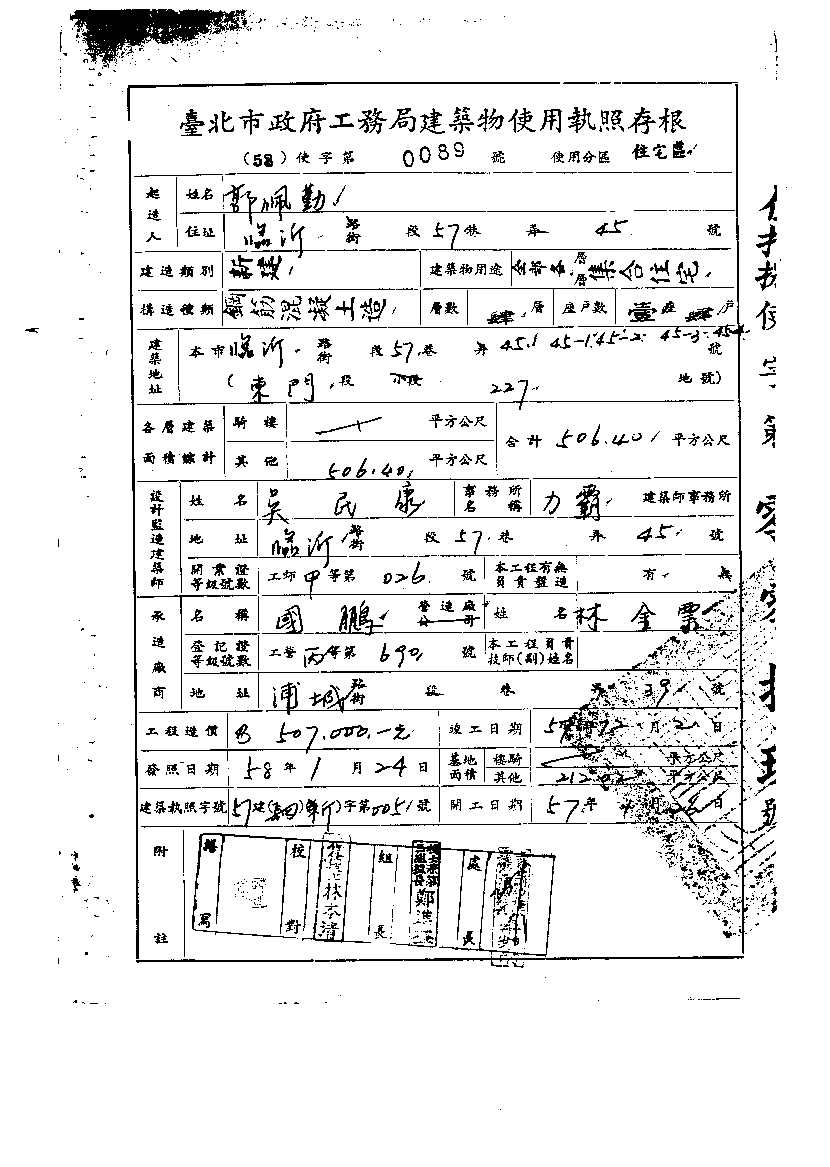 臺北市政府工務局建築物使用執照存根
(58)使字第 0089 號 使用分區 住宅區
起造人 姓名 郭佩勤
住址 臨沂 路街 段 57 巷 弄 45 號
建造類別 新建 建築物用途 全部各層 集合住宅
構造種類 鋼筋混凝土造 層數 肆 層 座戶數 壹 座 肆 戶
建築地址 本市 臨沂 路街 段 57 巷 弄 45. 45-1. 45-2. 45-3. 45-4 號
(東門 段 小段 227 地號)
各層建築面積總計 騎樓 平方公尺 合計 506.40 平方公尺
其他 506.40 平方公尺
設計監造建築師 姓名 吳民康 事務所名稱 力霸 建築師事務所
地址 臨沂 路街 段 57 巷 弄 45 號
開業證等級號數 工師 甲 等第 026 號 本工程有無負責監造 有 無
承造廠商 名稱 國鵬 營造廠公司 姓名 林金票
登記證等級號數 工營 丙 等第 690 號 本工程負責技師(副)姓名
地址 浦城 路街 段 巷 弄 39 號
工程造價 507,000.-元 竣工日期 57 年 12 月 2 日
發照日期 58 年 1 月 24 日 基地面積 樓騎 平方公尺
其他 平方公尺
建築執照字號 57 建 字第 0051 號 開工日期 57 年 4 月 日
附註
繕寫 校對 林本清 組長 處長